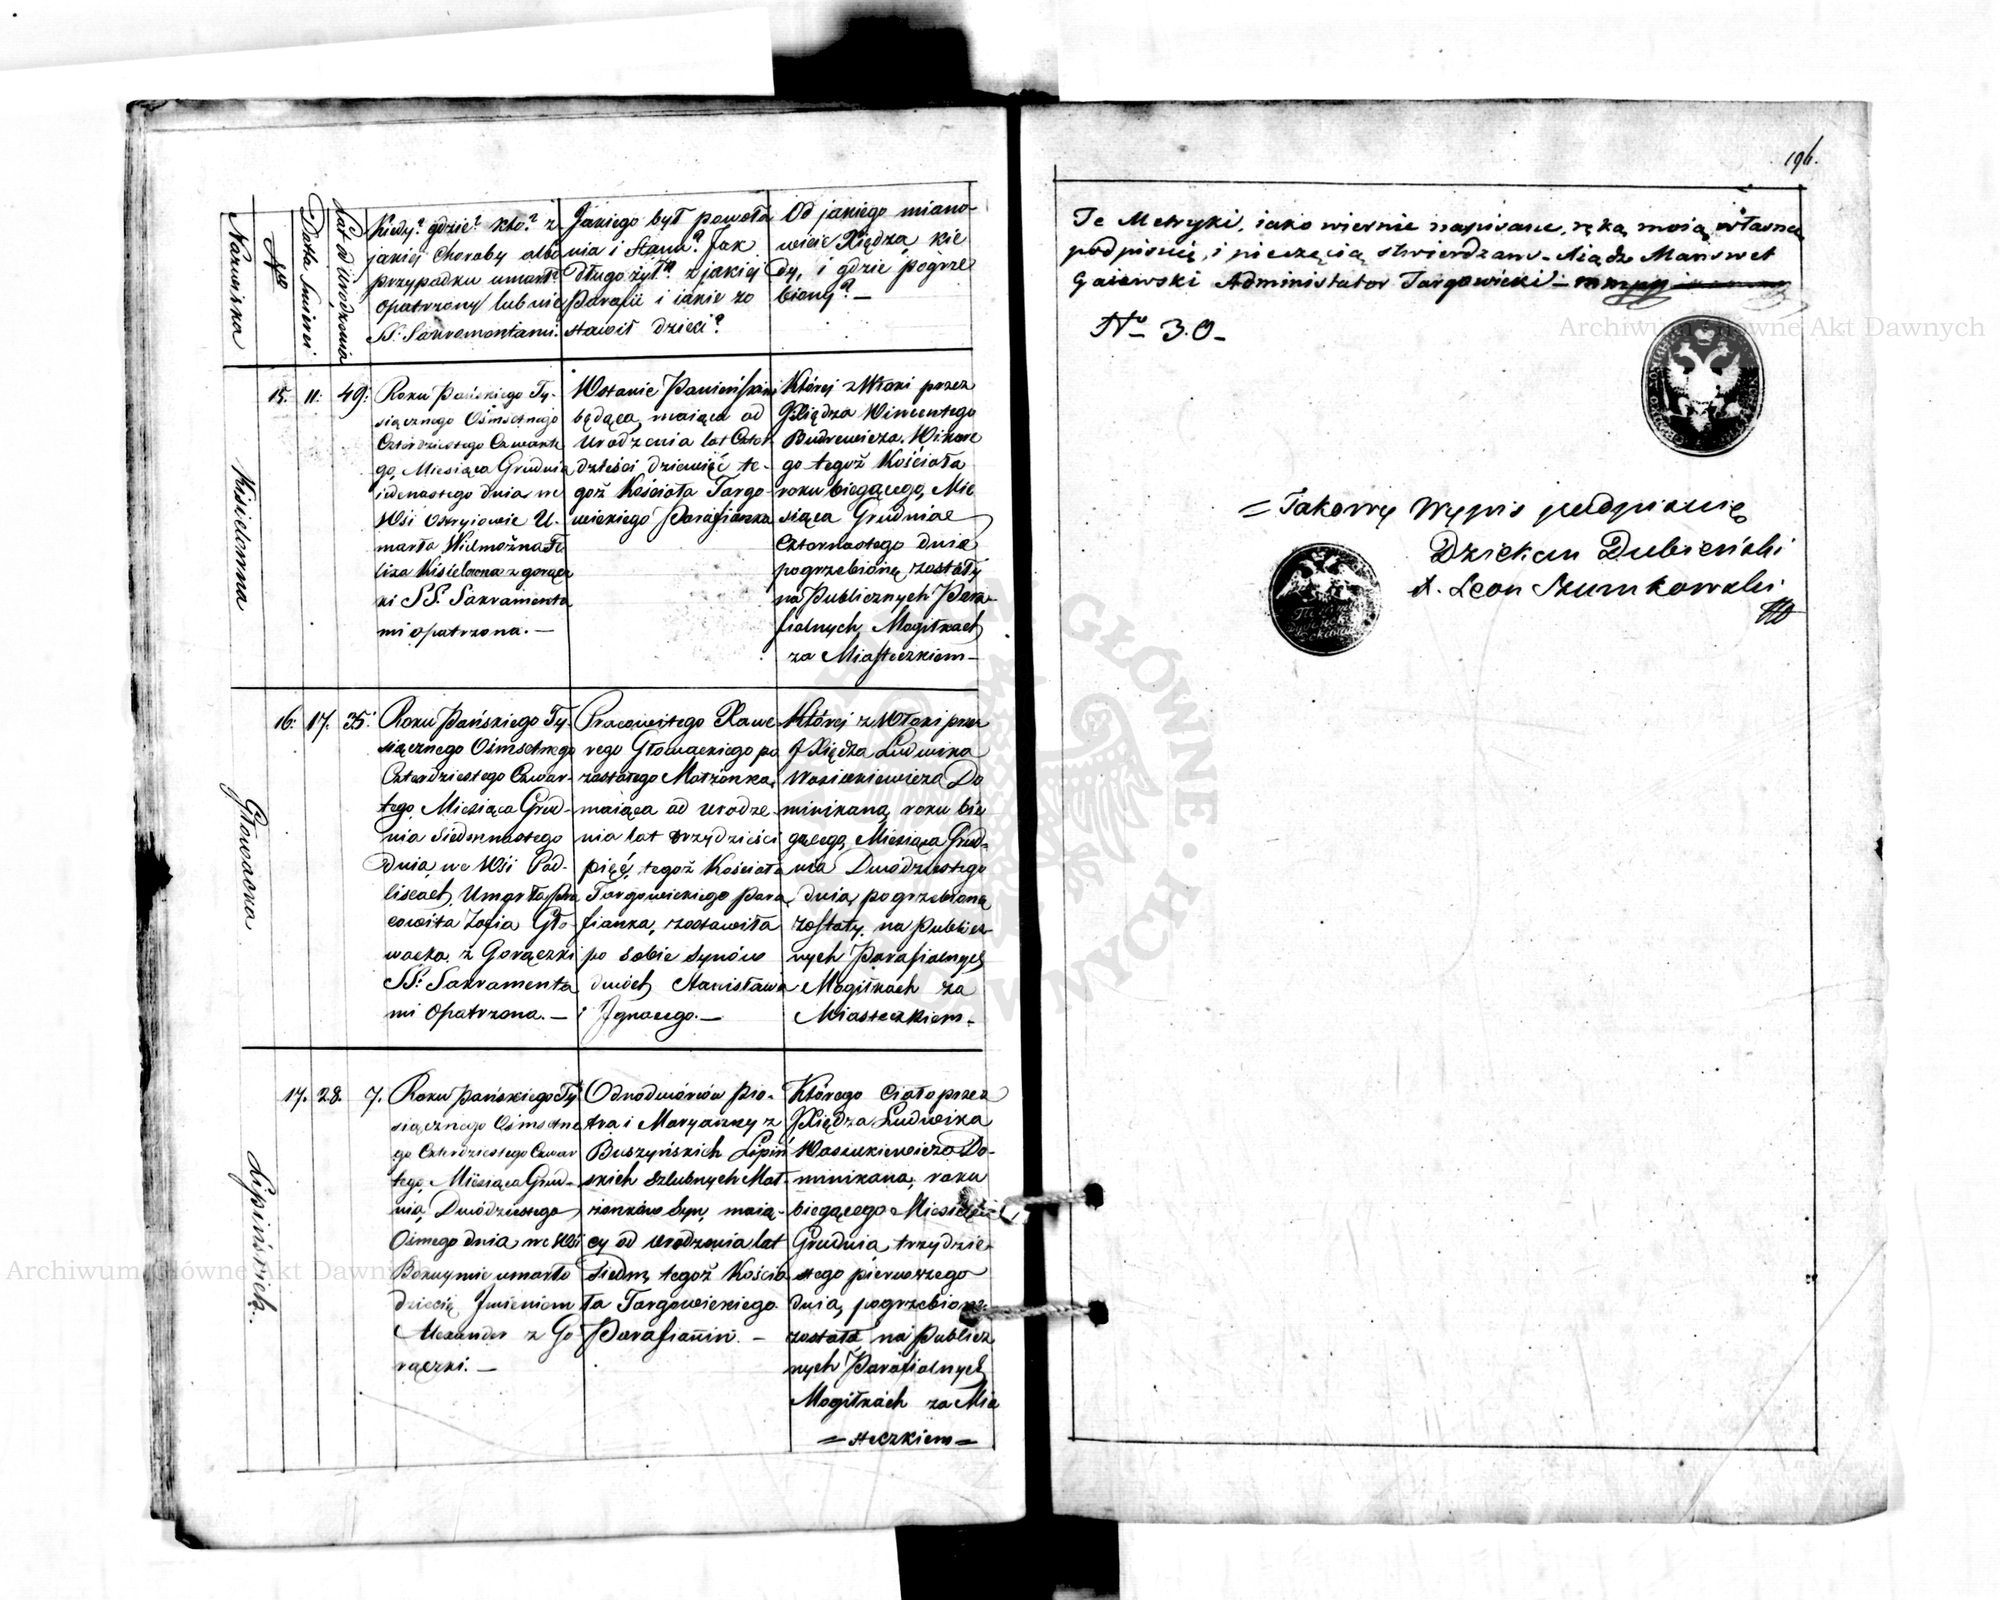 196.
Nazwiska
No
Data Śmierci
Lat od Urodzenia
Kiedy? gdzie? kto? z
jakiej choroby albo
przypadku umarł?
opatrzony lub nie
SS: Sakramentami.
Jakiego był powoła
nia i stanu? Jak
długo żył? z jakiej
Parafii i jakie zo
stawił dzieci?
Od jakiego miano-
wicie Xiędza kie
dy, i gdzie pogrze
biony? —
Kisielowna
15. 11. 49.
Roku Pańskiego Ty-
siącznego Ośmsetnego
Czterdziestego Czwarte
go, Miesiąca Grudnia
iedenastego dnia we
Wsi Ostryiowie U-
marła Wielmożna Fe
lixa Kisielowna z gorącz
ki SS. Sakramenta
mi opatrzona. —
W stanie Panieńskim
będąca, maiąca od
urodzenia lat Czter
dzieści dziewięć te-
goż Kościoła Targo-
wickiego Parafianka
Której zwłoki przez
JXiędza Wincentego
Budrewicza, Wikare
go tegoż Kościoła
roku biegącego, Mie
siąca Grudnia
Czternastego dnia
pogrzebione, zostały
na Publicznych Para-
fialnych Mogiłkach
za Miasteczkiem —
Głowacka
16. 17. 35.
Roku Pańskiego Ty-
siącznego Ośmsetnego
Czterdziestego Czwar-
tego, Miesiąca Grud-
nia siedmnastego
dnia, we Wsi Pod-
liscach, Umarła Pra
cowita Zofia Gło-
wacka, z Gorączki
SS: Sakramenta
mi opatrzona. —
Pracowitego Xawe-
rego Głowackiego po
zostałego Małżonka,
maiąca od urodze-
nia lat trzydzieści
pięć, tegoż Kościoła
Targowickiego Para
fianka, zostawiła
po sobie synów
dwóch Stanisława
i Ignacego. —
Której zwłoki przez
JXiędza Ludwika
Wasiukiewicza Do
minikana, roku bie
gącego, Miesiąca Grud-
nia Dwódziestego
dnia, pogrzebione
zostały, na Publicz-
nych Parafialnych
Mogiłkach za
Miasteczkiem. —
Lipińskich.
17. 28. 7.
Roku Pańskiego Ty
siącznego Ośmsetne
go Czterdziestego Czwar
tego, Miesiąca Grud-
nia, Dwódziestego
Osmego dnia, we Wsi
Bokuymie umarło
dziecię Imieniem
Alexander z Go
rączki. —
Odnodworców Pio-
tra i Maryanny z
Buszyńskich Lipiń
skich szlubnych Mał-
żonków Syn, maią-
cy od urodzenia lat
siedm, tegoż Kościo
ła Targowickiego
Parafianin. —
Którego Ciało przez
JXiędza Ludwika
Wasiukiewicza Do-
minikana, roku
biegącego Miesiąca
Grudnia, trzydzie-
stego pierwszego
dnia, pogrzebione
zostało na Publicz
nych Parafialnych
Mogiłkach za Mia
= steczkiem =
Te Metryki, iako wiernie napisane, ręką moią własną
podpisuię, i pieczęcią stwierdzam — Xiądz Manswet
Gaiewski Administrator Targowicki —
No 30 —
= Takowy Wypis podpisuię
Dziekan Dubieński
X. Leon Szumkowski
Archiwum Główne Akt Dawnych
Archiwum Główne Akt Dawnych